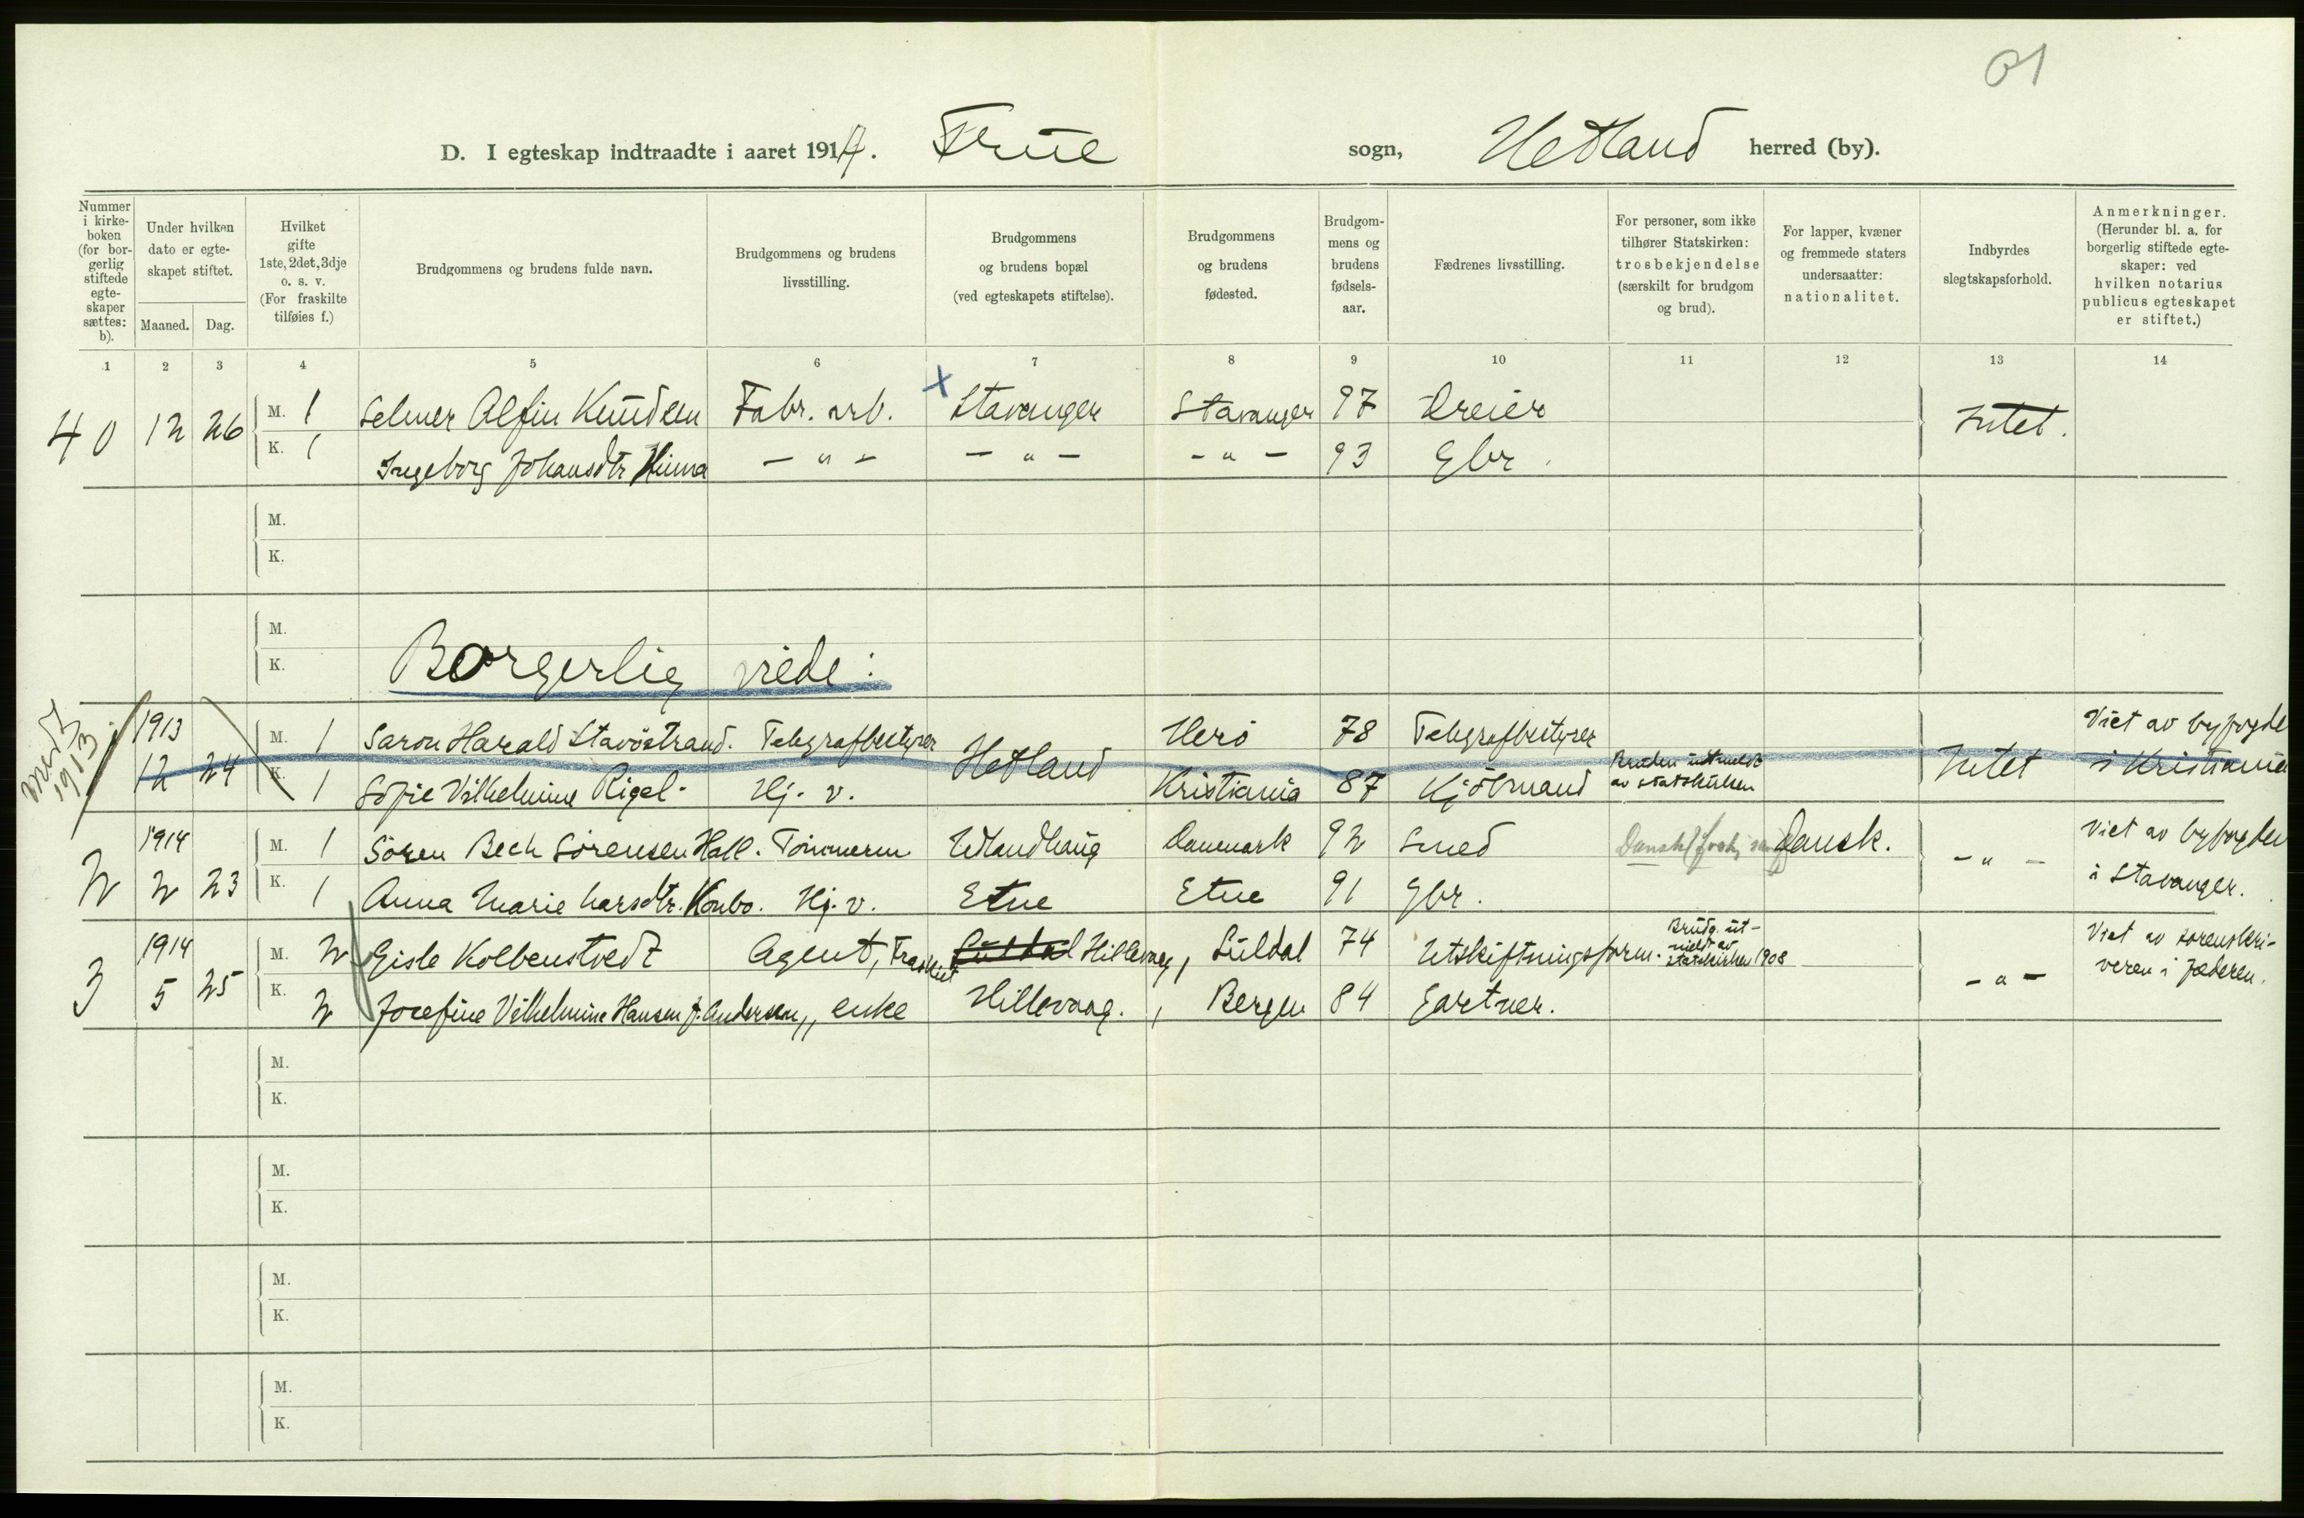 91
D. I egteskap indtraadte i aaret 1914. Frue sogn, Hetland herred (by).
Nummer i kirke-boken (for bor-gerlig stiftede egte-skaper sættes: b).
Under hvilken dato er egte-skapet stiftet.
Maaned. Dag.
Hvilket gifte 1ste, 2det, 3dje o. s. v. (For fraskilte tilføies f.)
Brudgommens og brudens fulde navn.
Brudgommens og brudens livsstilling.
Brudgommens og brudens bopæl (ved egteskapets stiftelse).
Brudgommens og brudens fødested.
Brudgom-mens og brudens fødsels-aar.
Fædrenes livsstilling.
For personer, som ikke tilhører Statskirken: trosbekjendelse (særskilt for brudgom og brud).
For lapper, kvæner og fremmede staters undersaatter: nationalitet.
Indbyrdes slegtskapsforhold.
Anmerkninger. (Herunder bl. a. for borgerlig stiftede egte-skaper: ved hvilken notarius publicus egteskapet er stiftet.)
1 2 3 4 5 6 7 8 9 10 11 12 13 14
40 12 26 M. 1 Selmer Alfin Knudsen Fabr. arb. x Stavanger Stavanger 97 Dreier Intet.
K. 1 Ingeborg Johansdtr Hinna - " - - " - - " - 93 Gbr.
M.
K.
M.
K.
Borgerlig viede:
1913
1913 12 24 M. 1 Saron Harald Stavöstrand. Telegrafbestyrer Hetland Herö 78 Telegrafbestyrer Intet Viet av byfogde i Kristiania
K. 1 Sofie Vilhelmine Rigel. Hj. v. Kristiania 87 Kjöbmand Bruden utmeldt av statskirken
1914
2 2 23 M. 1 Sören Bech Sörensen Hall. Tömmerm Danmark 92 Smed Dansk Dansk. - " - Viet av byfogden i Stavanger.
K. 1 Anna Marie Larsdtr. Hj. v. Etne Etne 91 Gbr.
1914
3 5 25 M. 2 Gisle Kolbenstvedt Agent, Fraskilt Suldal Hillevaag, Suldal 74 Utskiftningsform. Brudg. ut-meldt av statskirken 1908 - " - Viet av sorenskri-veren i Jæderen.
K. 2 Josefine Vilhelmine Hansen f. Andersen,, enke Hillevaag. , Bergen 84 Gartner.
M.
K.
M.
K.
M.
K.
M.
K.